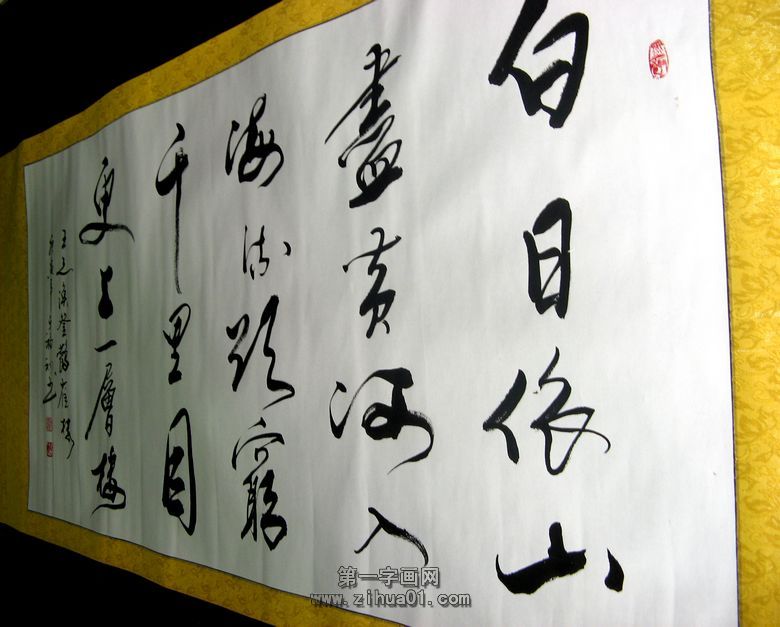 白日依山
盡黄河入
海流欲窮
千里目
更上一層樓
王之渙登鸛雀樓
第一字画网
www.zihua01.com